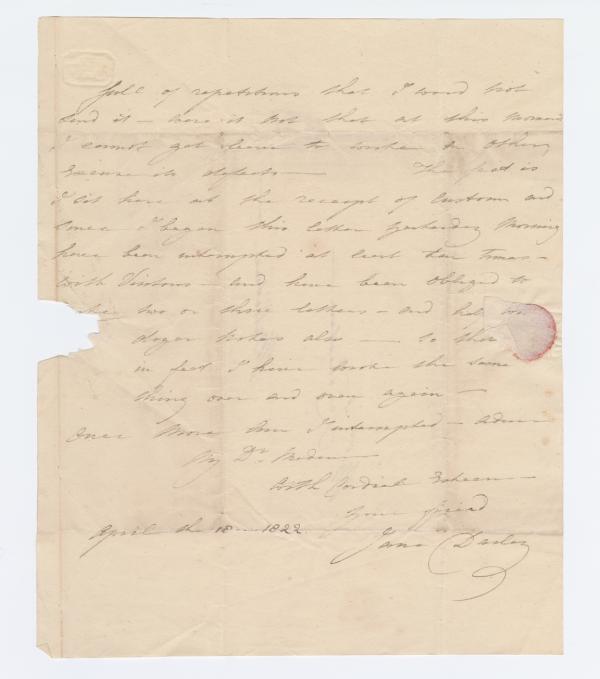 full of repetitions that I would not
send it – were it not that at this moment
I cannot get leave to write an other
Excuse its defects — The fact is
I sit here at the receipt of Customs and
Since I began this letter Yesterday Morning
have been interrupted at least ten times –
with Visitors – and have been obliged to
two or three letters – and half
dozen Notes also — So that
in fact I have wrote the same
thing over and over again –
Once More am I interrupted – adieu
My Dr. Madam
With Cordial Esteem –
Your friend
April the 18 – 1822
Jane